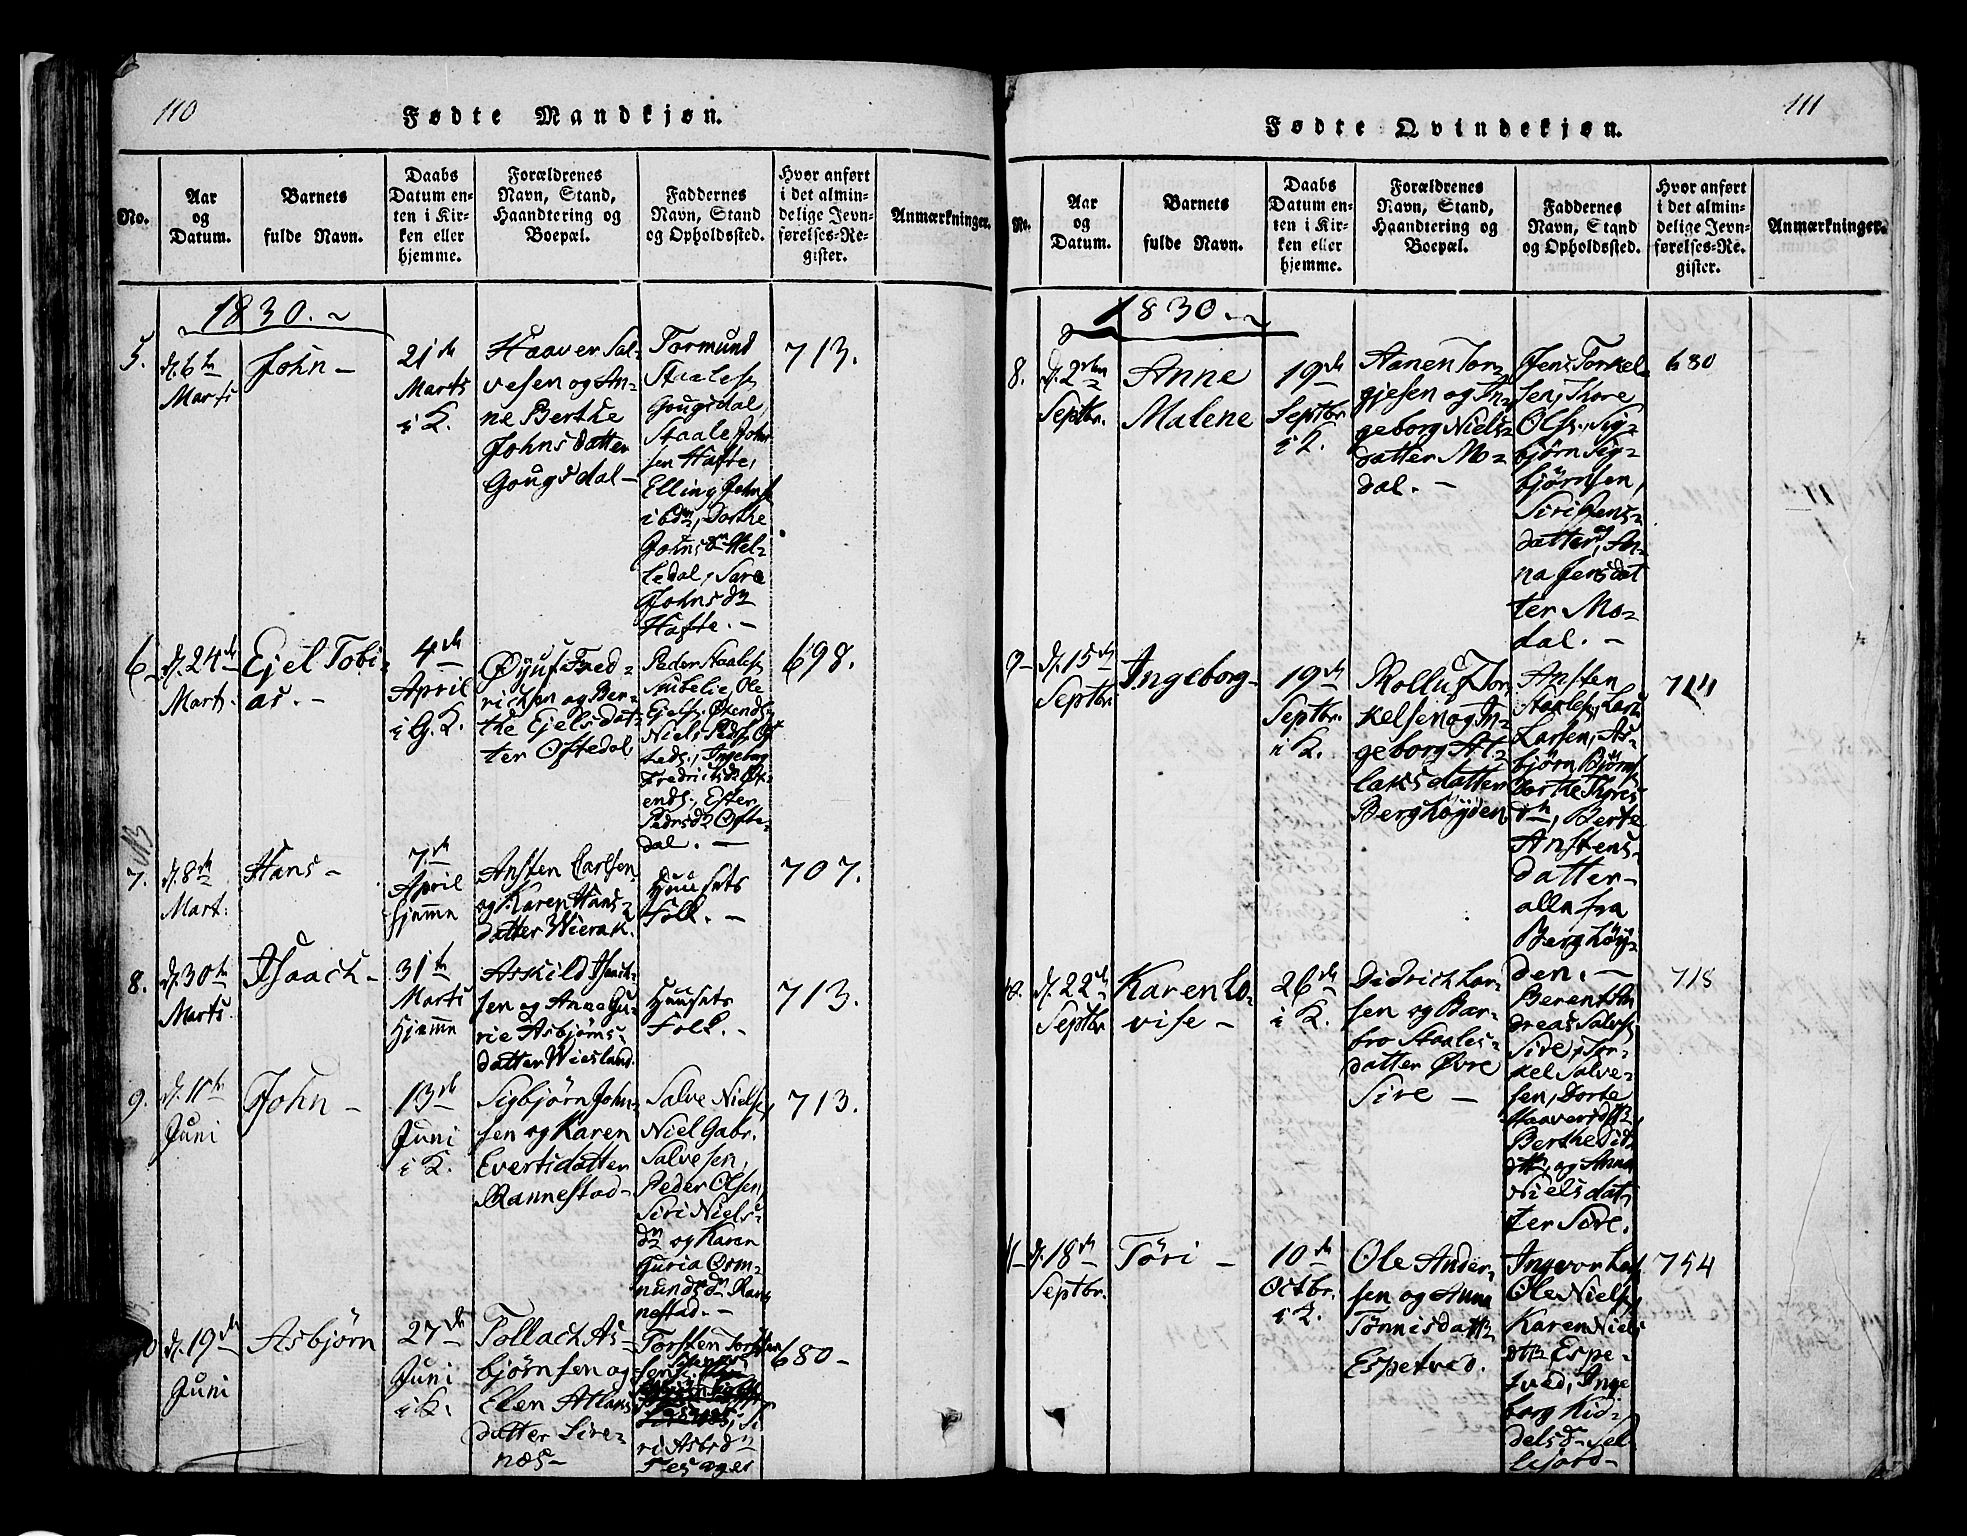 110
Fødte Mandkjøn.
No.
Aar
og
Datum.
Barnets
fulde Navn.
Daabs
Datum en-
ten i Kir-
ken eller
hjemme.
Forældrenes
Navn, Stand,
Haandtering og
Boepæl.
Faddernes
Navn, Stand
og Opholdssted.
Hvor anført
i det almin-
delige Jevn-
førelses-Re-
gister.
Anmærkninger.
1830.
5.
d. 6te
Marts
John
21de
Marts
i K.
Haaver Sal-
vesen og An-
ne Berthe
Johnsdatter
Gougsdal
Tormund
Staales.
Gougsdal,
Staale John-
sen Hafte,
Elling Johns.
ibdm, Dorthe
Johnsdn Hel-
ledal, Sara
Johnsdn
Hafte.
713.
6
d. 24de
Marts.
Ejel Tobi-
as.
4de
April
i G. K.
Øyuf Fred-
richsen og Ber-
the Ejelsdat-
ter Oftedal
Peder Staales.
Ole
Ejels.
Niels
Ingeborg
Ester
Pedersdn Ofte-
dal.
698.
NB
7.
d. 8de
Mart.
Hans
7de
April
hjemme
Ansten Carlsen
og Karen Hans-
datter Wierak.
Huusets
Folk.
707.
8.
d. 30te
Marts
Isaach
31te
Marts
hjemme
Askild Isach-
sen og Anne Gu-
rie Asbjørns-
datter Wiesland.
Huusets
Folk.
713.
9.
d. 11te
Juni
John
13de
Juni
i K.
Sigbjørn John-
sen og Karen
Evertsdatter
Rannestad
Salve Niels.,
Niel Gabr.
Salvesen,
Peder Olsen,
Siri Niels-
dn og Karen
Guria Osm-
nundsdn Ran-
nestad.
713.
10
d. 19de
Juni
Asbjørn
27de
Juni
i K.
Tollach As-
bjørnsen og
Elen Atlaks
datter Sire-
næs
Torsten Torsten
sen
Si-
ri Asbrdn
680
111
Fødte Qvindekjøn.
No.
Aar
og
Datum.
Barnets
fulde Navn.
Daabs
Datum en-
ten i Kir-
ken eller
hjemme.
Forældrenes
Navn, Stand,
Haandtering og
Boepæl.
Faddernes
Navn, Stand
og Opholdssted.
Hvor anført
i det almin-
delige Jevn-
førelses-Re-
gister.
Anmærkninger.
1830.
8.
d. 2den
Septbr.
Anne
Malene
19de
Septbr.
i K.
Aanen Tor-
gjesen og In-
geborg Niels-
datter Mo-
dal.
Jens Torkel-
sen, Thore
Ols., Sig-
bjørn Sig-
bjørnsen,
Siri Jens-
datter, An-
na Jensdat
ter Mo-
dal.
680
9
d. 15de
Septbr.
Ingeborg
19de
Septbr.
i K.
Rolluf Tor-
kelsen og In-
geborg At-
laksdatter
Berghøyden
Ansten
Staales., Lars
Larsen, As-
bjørn Bjørns.
Dorthe Thores
dtr, Berte
Anstens-
datter
alle fra
Berghøy-
den.
711
10.
d. 22de
Septbr.
Karen Lo-
vise
26de
i K.
Didrich Lar-
sen og Bar-
bro Staales-
datter Øvre
Sire
Berent An
dreas Salves.
Sire, Tor-
kel Salve-
sen, Dorte
Haaversdtr
Berthe Did.
dtr, og Anna
Nielsdat-
ter Sire.
718
11
d. 18de
Septbr.
Töri
10de
Octbr.
i K.
Ole Ander-
sen og Anna
Tönnisdattr
Espetved.
Ole Niels.,
Karen Niels
dtr Espe-
tved, Inge
borg Kid-
delsd. Sel-
leford
754